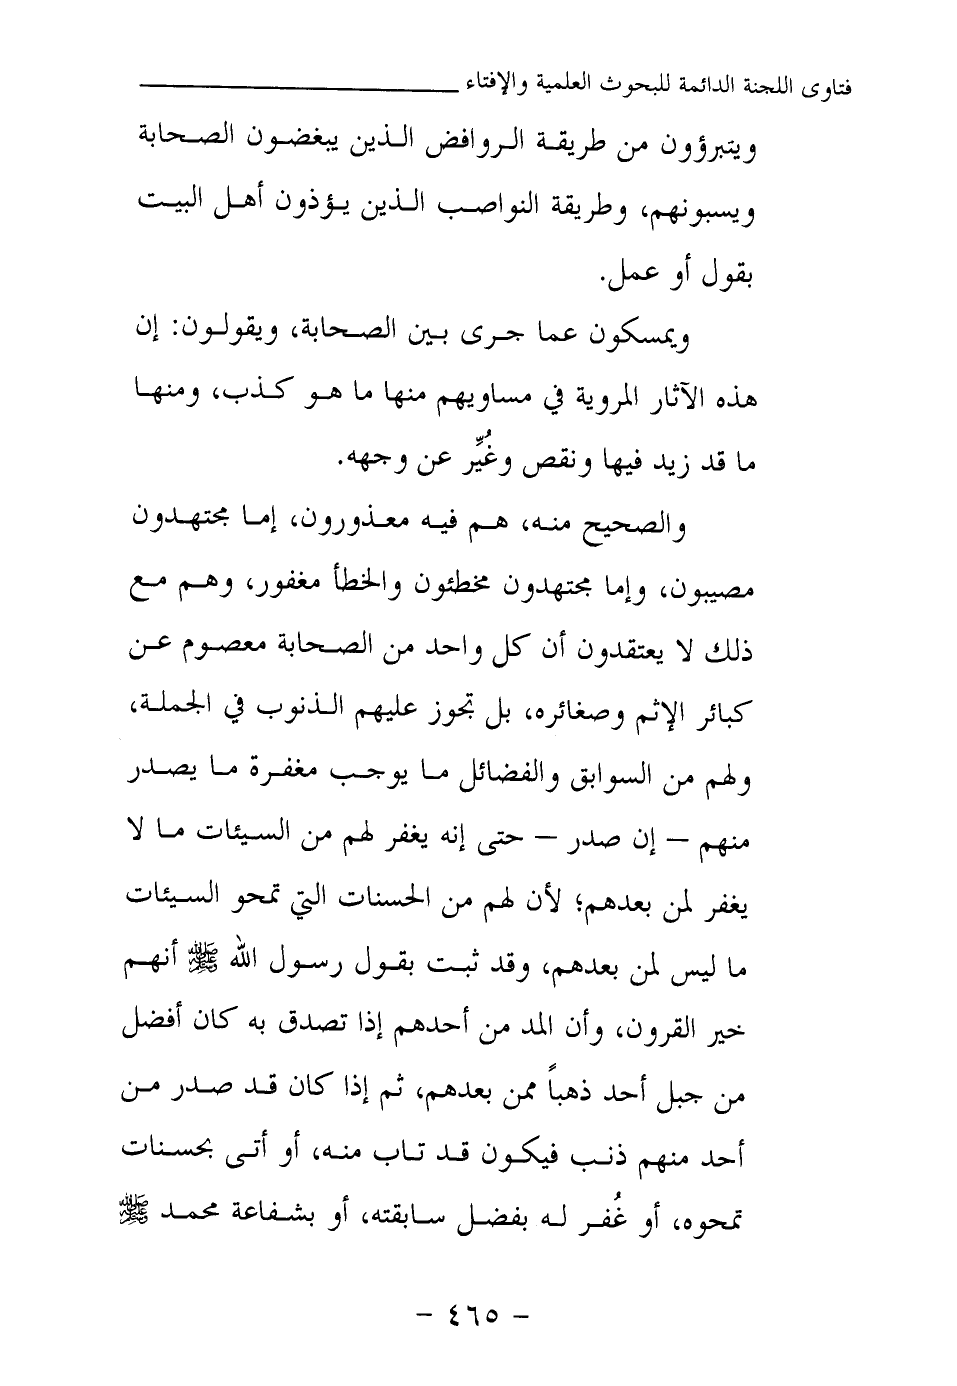 فتاوى اللجنة الدائمة للبحوث العلمية والإفتاء
ويتبرؤون من طريقة الروافض الذين يبغضون الصحابة
ويسبونهم، وطريقة النواصب الذين يؤذون أهل البيت
بقول أو عمل.
ويمسكون عما جرى بين الصحابة، ويقولون: إن
هذه الآثار المروية في مساويهم منها ما هو كذب، ومنها
ما قد زيد فيها ونقص وغُيِّر عن وجهه.
والصحيح منه، هم فيه معذورون، إما مجتهدون
مصيبون، وإما مجتهدون مخطئون والخطأ مغفور، وهم مع
ذلك لا يعتقدون أن كل واحد من الصحابة معصوم عن
كبائر الإثم وصغائره، بل تجوز عليهم الذنوب في الجملة،
ولهم من السوابق والفضائل ما يوجب مغفرة ما يصدر
منهم – إن صدر – حتى إنه يغفر لهم من السيئات ما لا
يغفر لمن بعدهم؛ لأن لهم من الحسنات التي تمحو السيئات
ما ليس لمن بعدهم، وقد ثبت بقول رسول الله ﷺ أنهم
خير القرون، وأن المد من أحدهم إذا تصدق به كان أفضل
من جبل أحد ذهباً ممن بعدهم، ثم إذا كان قد صدر من
أحد منهم ذنب فيكون قد تاب منه، أو أتى بحسنات
تمحوه، أو غُفر له بفضل سابقته، أو بشفاعة محمد ﷺ
- ٤٦٥ -